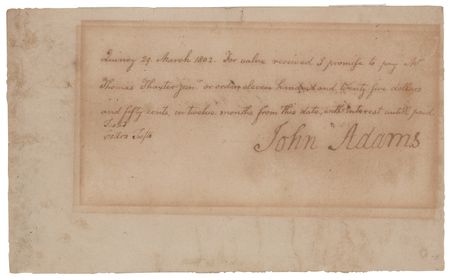 Quincy 29 March 1802. For value received I promise to pay Mr
Thomas Thaxter Junr or order eleven hundred and twenty five dollars
and fifty cents in twelve months from this date, with Interest untill paid
John Adams